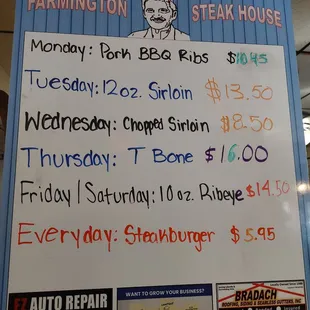 FARMINGTON STEAK HOUSE
Monday: Pork BBQ Ribs $10.45
Tuesday: 12oz. Sirloin $13.50
Wednesday: Chopped Sirloin $8.50
Thursday: T Bone $16.00
Friday/Saturday: 10oz. Ribeye $14.50
Everyday: Steakburger $5.95
EZ AUTO REPAIR
WANT TO GROW YOUR BUSINESS?
BRADACH
ROOFING, SIDING & SEAMLESS GUTTERS, INC